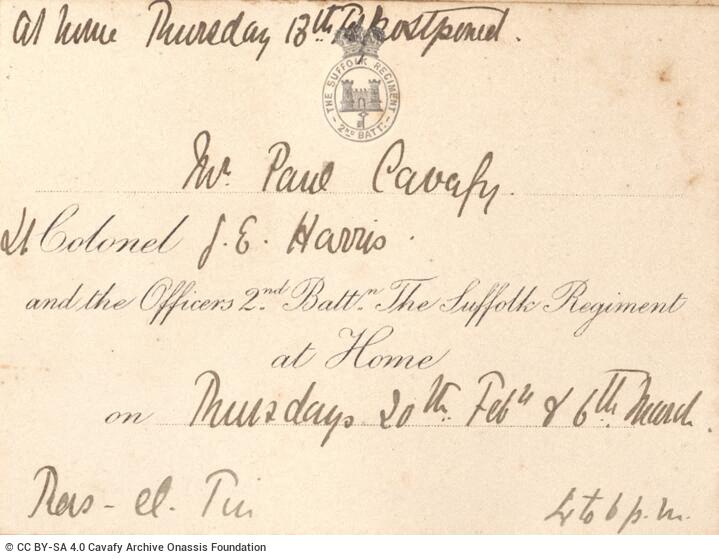 At home Thursday 13th Feb postponed.
THE SUFFOLK REGIMENT
2ND BATTN
Mr. Paul Cavafy.
Lt Colonel J. E. Harris.
and the Officers 2nd Battn. The Suffolk Regiment
at Home
on Thursdays 20th Feby & 6th March.
Ras-el-Tin
4 to 6 p.m.
© CC BY-SA 4.0 Cavafy Archive Onassis Foundation